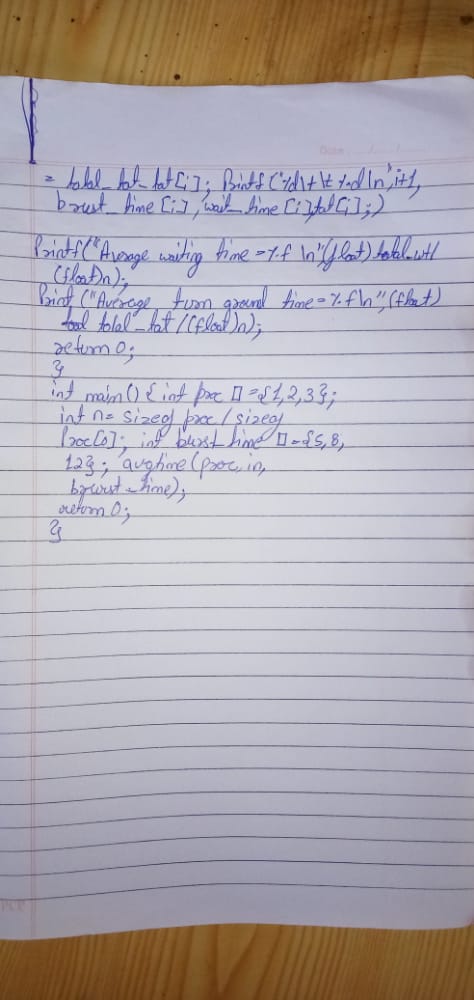 = total_tat_tat[i]; Printf("%d\t \t %d \n", i+1,
brust_time [i], wait_time [i], tat[i];)
Printf("Average waiting time = %.f \n" (float) total_wt/
(float)n);
Print ("Average turn ground time = %.f\n", (float)
total_tat/(float)n);
return 0;
}
int main() { int proc [] = {1,2,3};
int n = sizeof proc / sizeof
Proc[0]; int burst time [] = {5, 8,
12}; avgtime (proc, n,
brurst_time);
return 0;
}